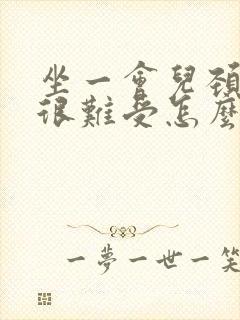 坐一會兒頸
很難受怎麼
一夢一世一笑